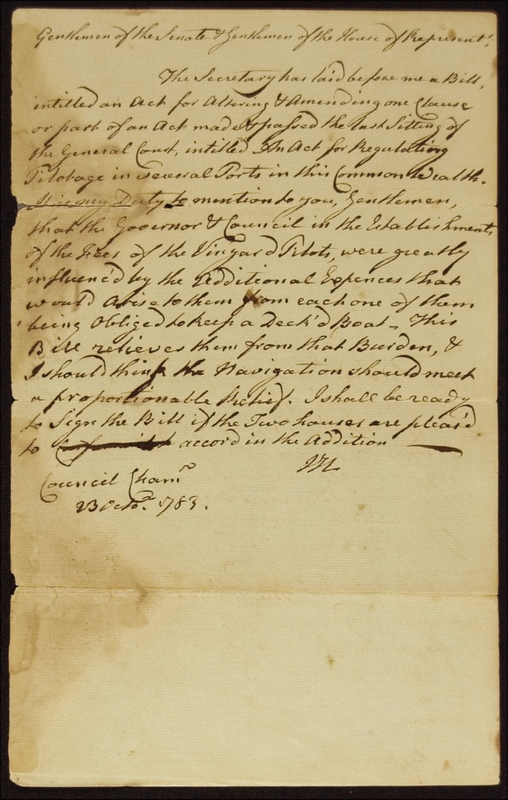 Gentlemen of the Senate & Gentlemen of the House of Represent.
The Secretary has laid before me a Bill,
intitled an Act for Altering & Amending one Clause
or part of an Act made & passed the last Sitting of
the General Court, intitled An Act for Regulating
Pilotage in several Ports in this Common Wealth.
It is my Duty to mention to you, Gentlemen,
that the Governor & Council in the Establishments
of the Fees of the Vinyard Pilots, were greatly
influenced by the Additional Expences that
would Arise to them from each one of them
being Obliged to keep a Deck'd Boat. This
Bill relieves them from that Burden, &
I should think the Navigation should meet
a proportionable Relief. I shall be ready
to Sign the Bill if the Two houses are pleas'd
to accord in the Addition
JH
Council Cham.
23 Octo. 1783.